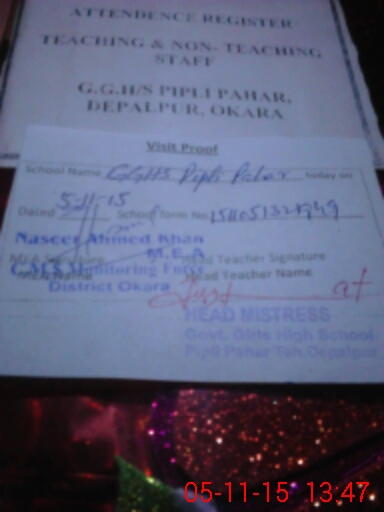 ATTENDENCE REGISTER
TEACHING & NON- TEACHING
STAFF
G.G.H/S PIPLI PAHAR,
DEPALPUR, OKARA
Visit Proof
School Name GGHS Pipli Pahar today on
Dated 5-11-15 School form No
Naseer Ahmed Khan
M.E.A
MEA Signature Head Teacher Signature
C.M.S Monitoring Force
MEA Name Head Teacher Name
District Okara
at
HEAD MISTRESS
Govt. Girls High School
Pipli Pahar Teh.Depalpur
05-11-15 13:47